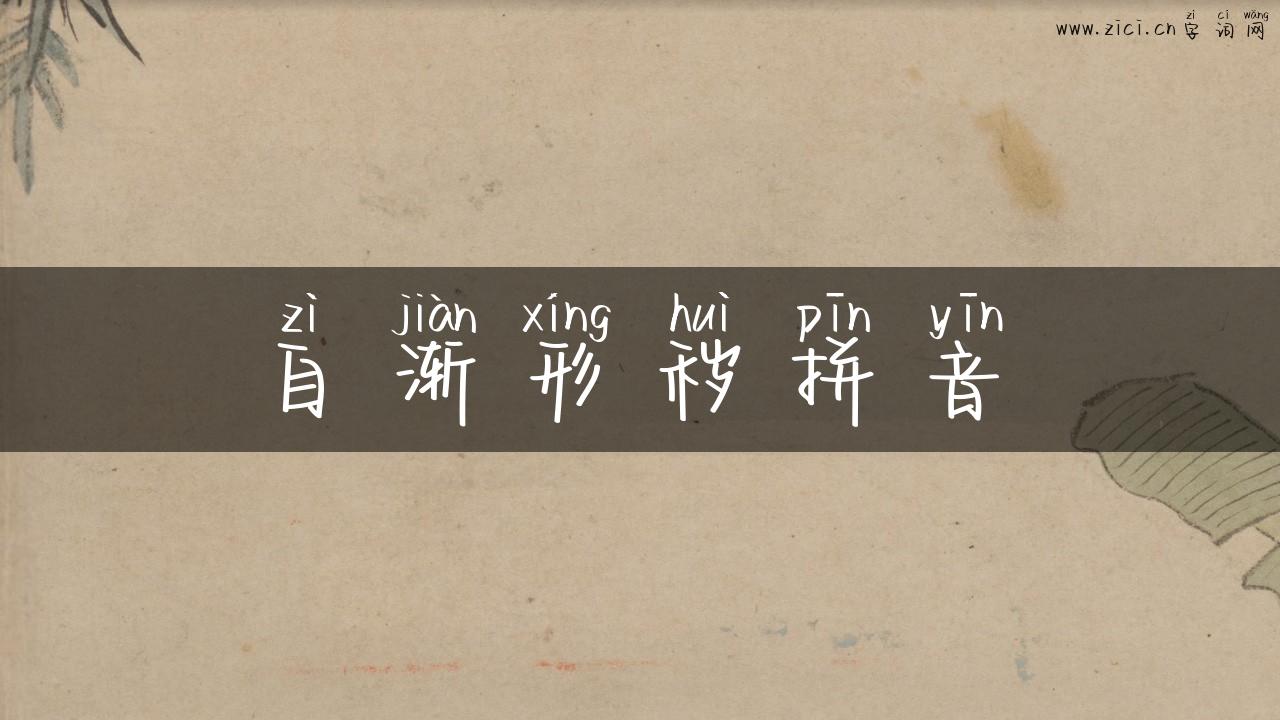 zì cí wǎng
www.zici.cn 字 词 网
zì jiàn xíng huì pīn yīn
自 渐 形 秽 拼 音